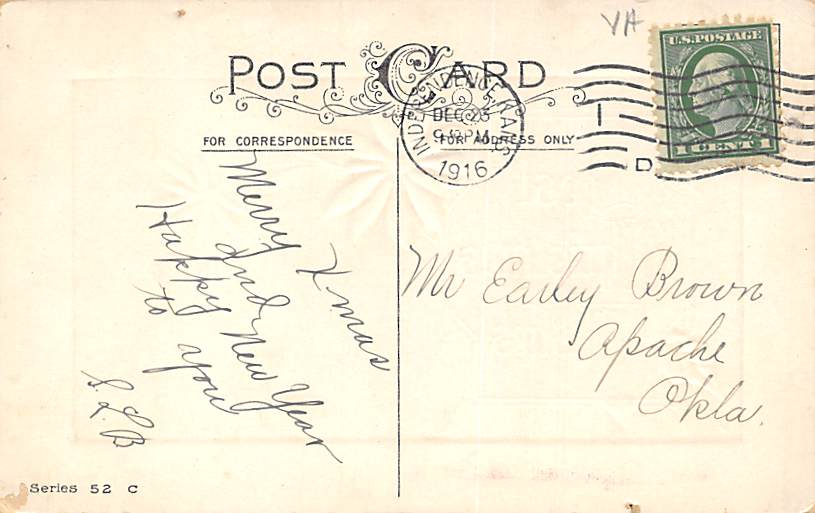 VA
POST CARD
U.S. POSTAGE
1 CENT 1
INDEPENDENCE, KANS.
DEC 23
1916
D
FOR CORRESPONDENCE
FOR ADDRESS ONLY
Merry Xmas
and
Happy New Year
to you
S.L.B
Mr Earley Brown
Apache
Okla.
Series 52 C